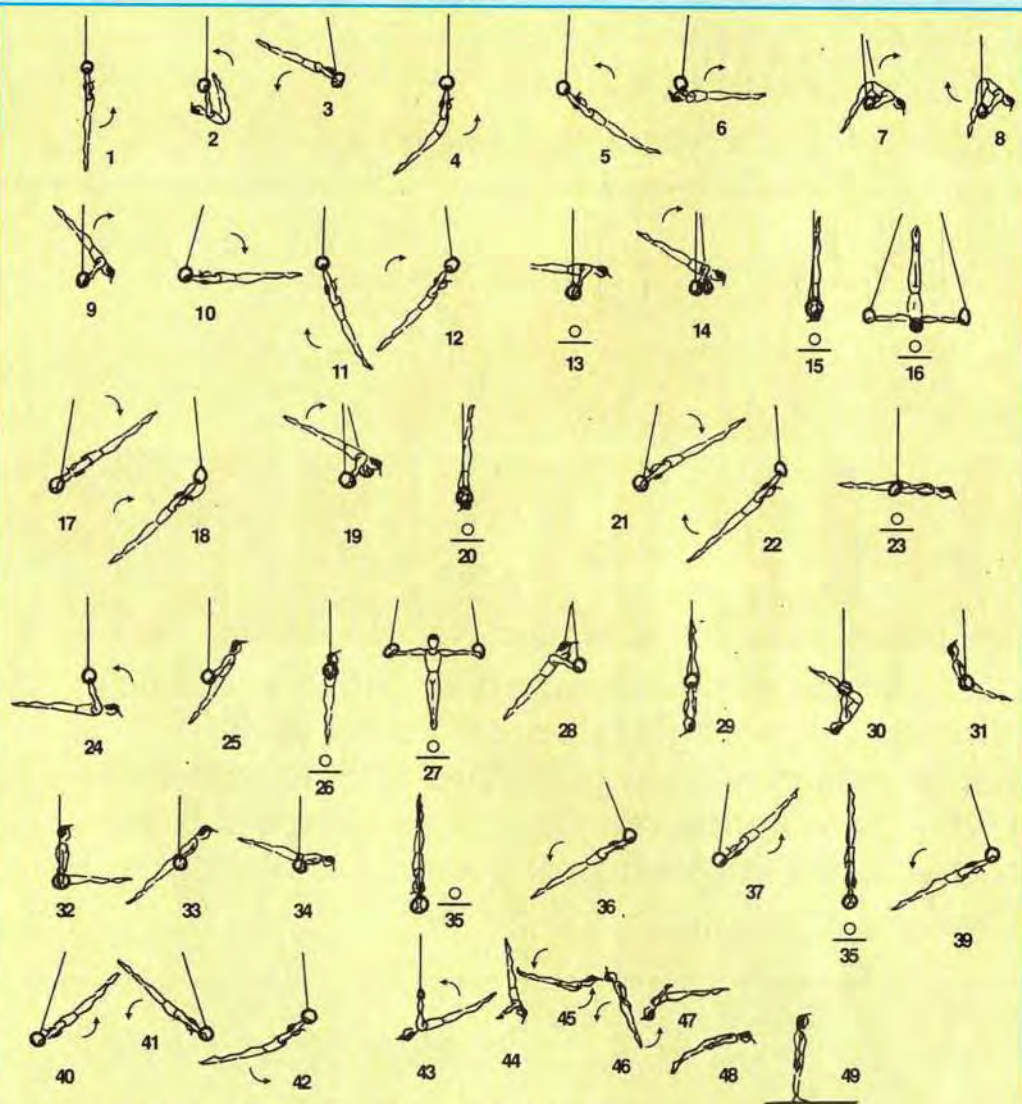 1 2 3 4 5 6 7 8
9 10 11 12 13 14 15 16
17 18 19 20 21 22 23
24 25 26 27 28 29 30 31
32 33 34 35 36 37 35 39
40 41 42 43 44 45 46 47 48 49